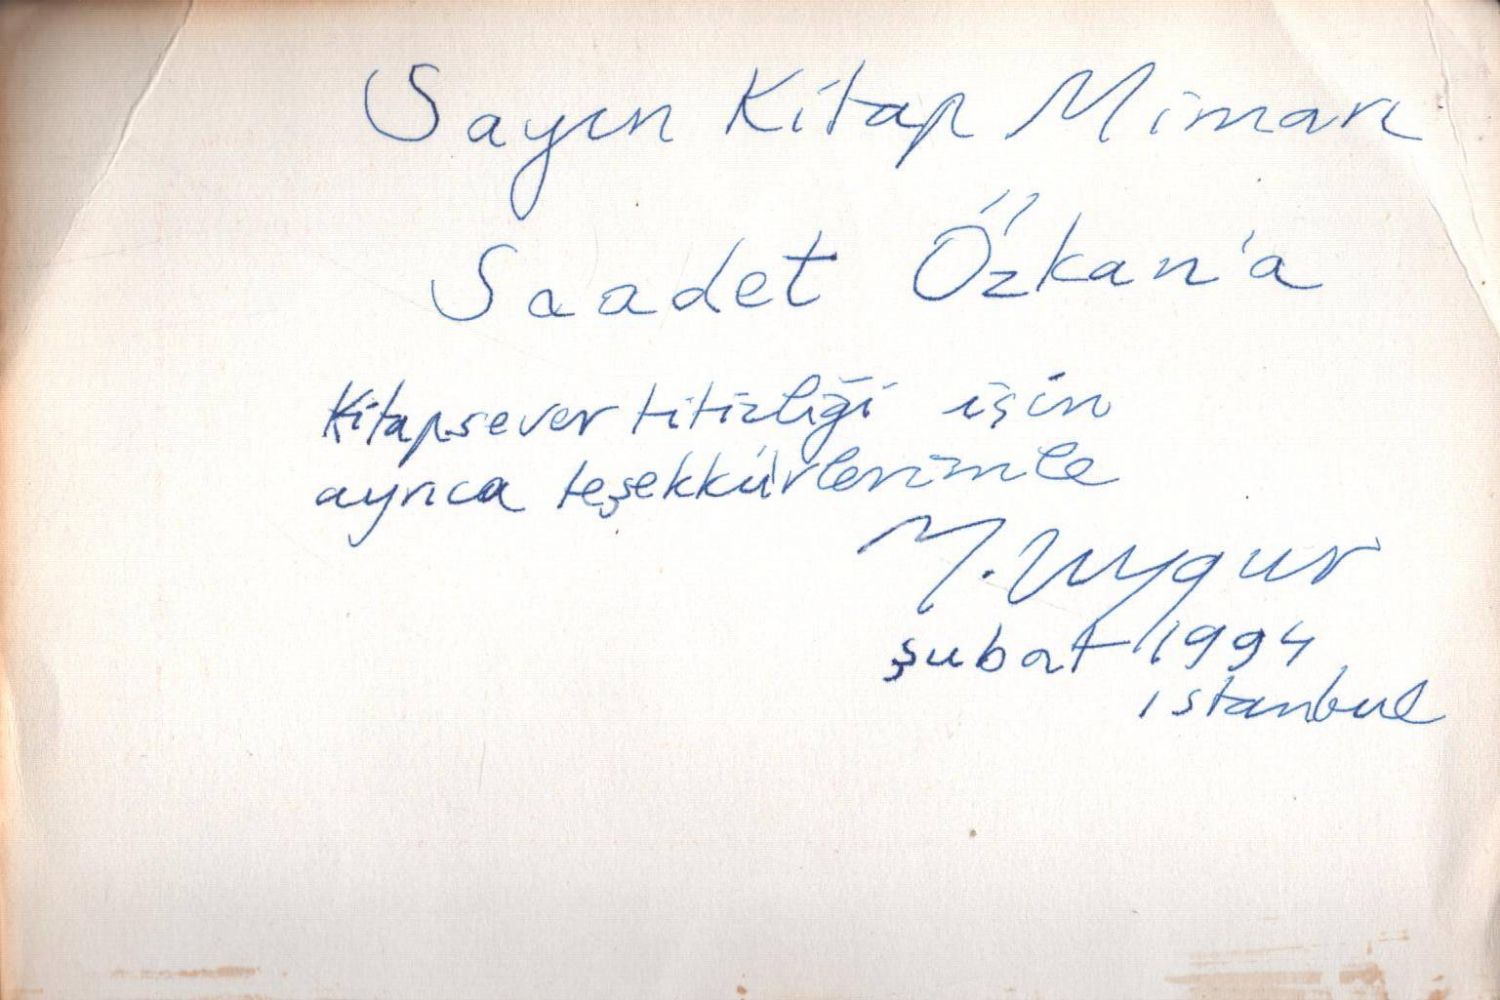 Sayın Kitap Mimarı
Saadet Özkan'a
Kitapsever titizliği için
ayrıca teşekkürlerimle
M. Uygur
şubat 1994
istanbul